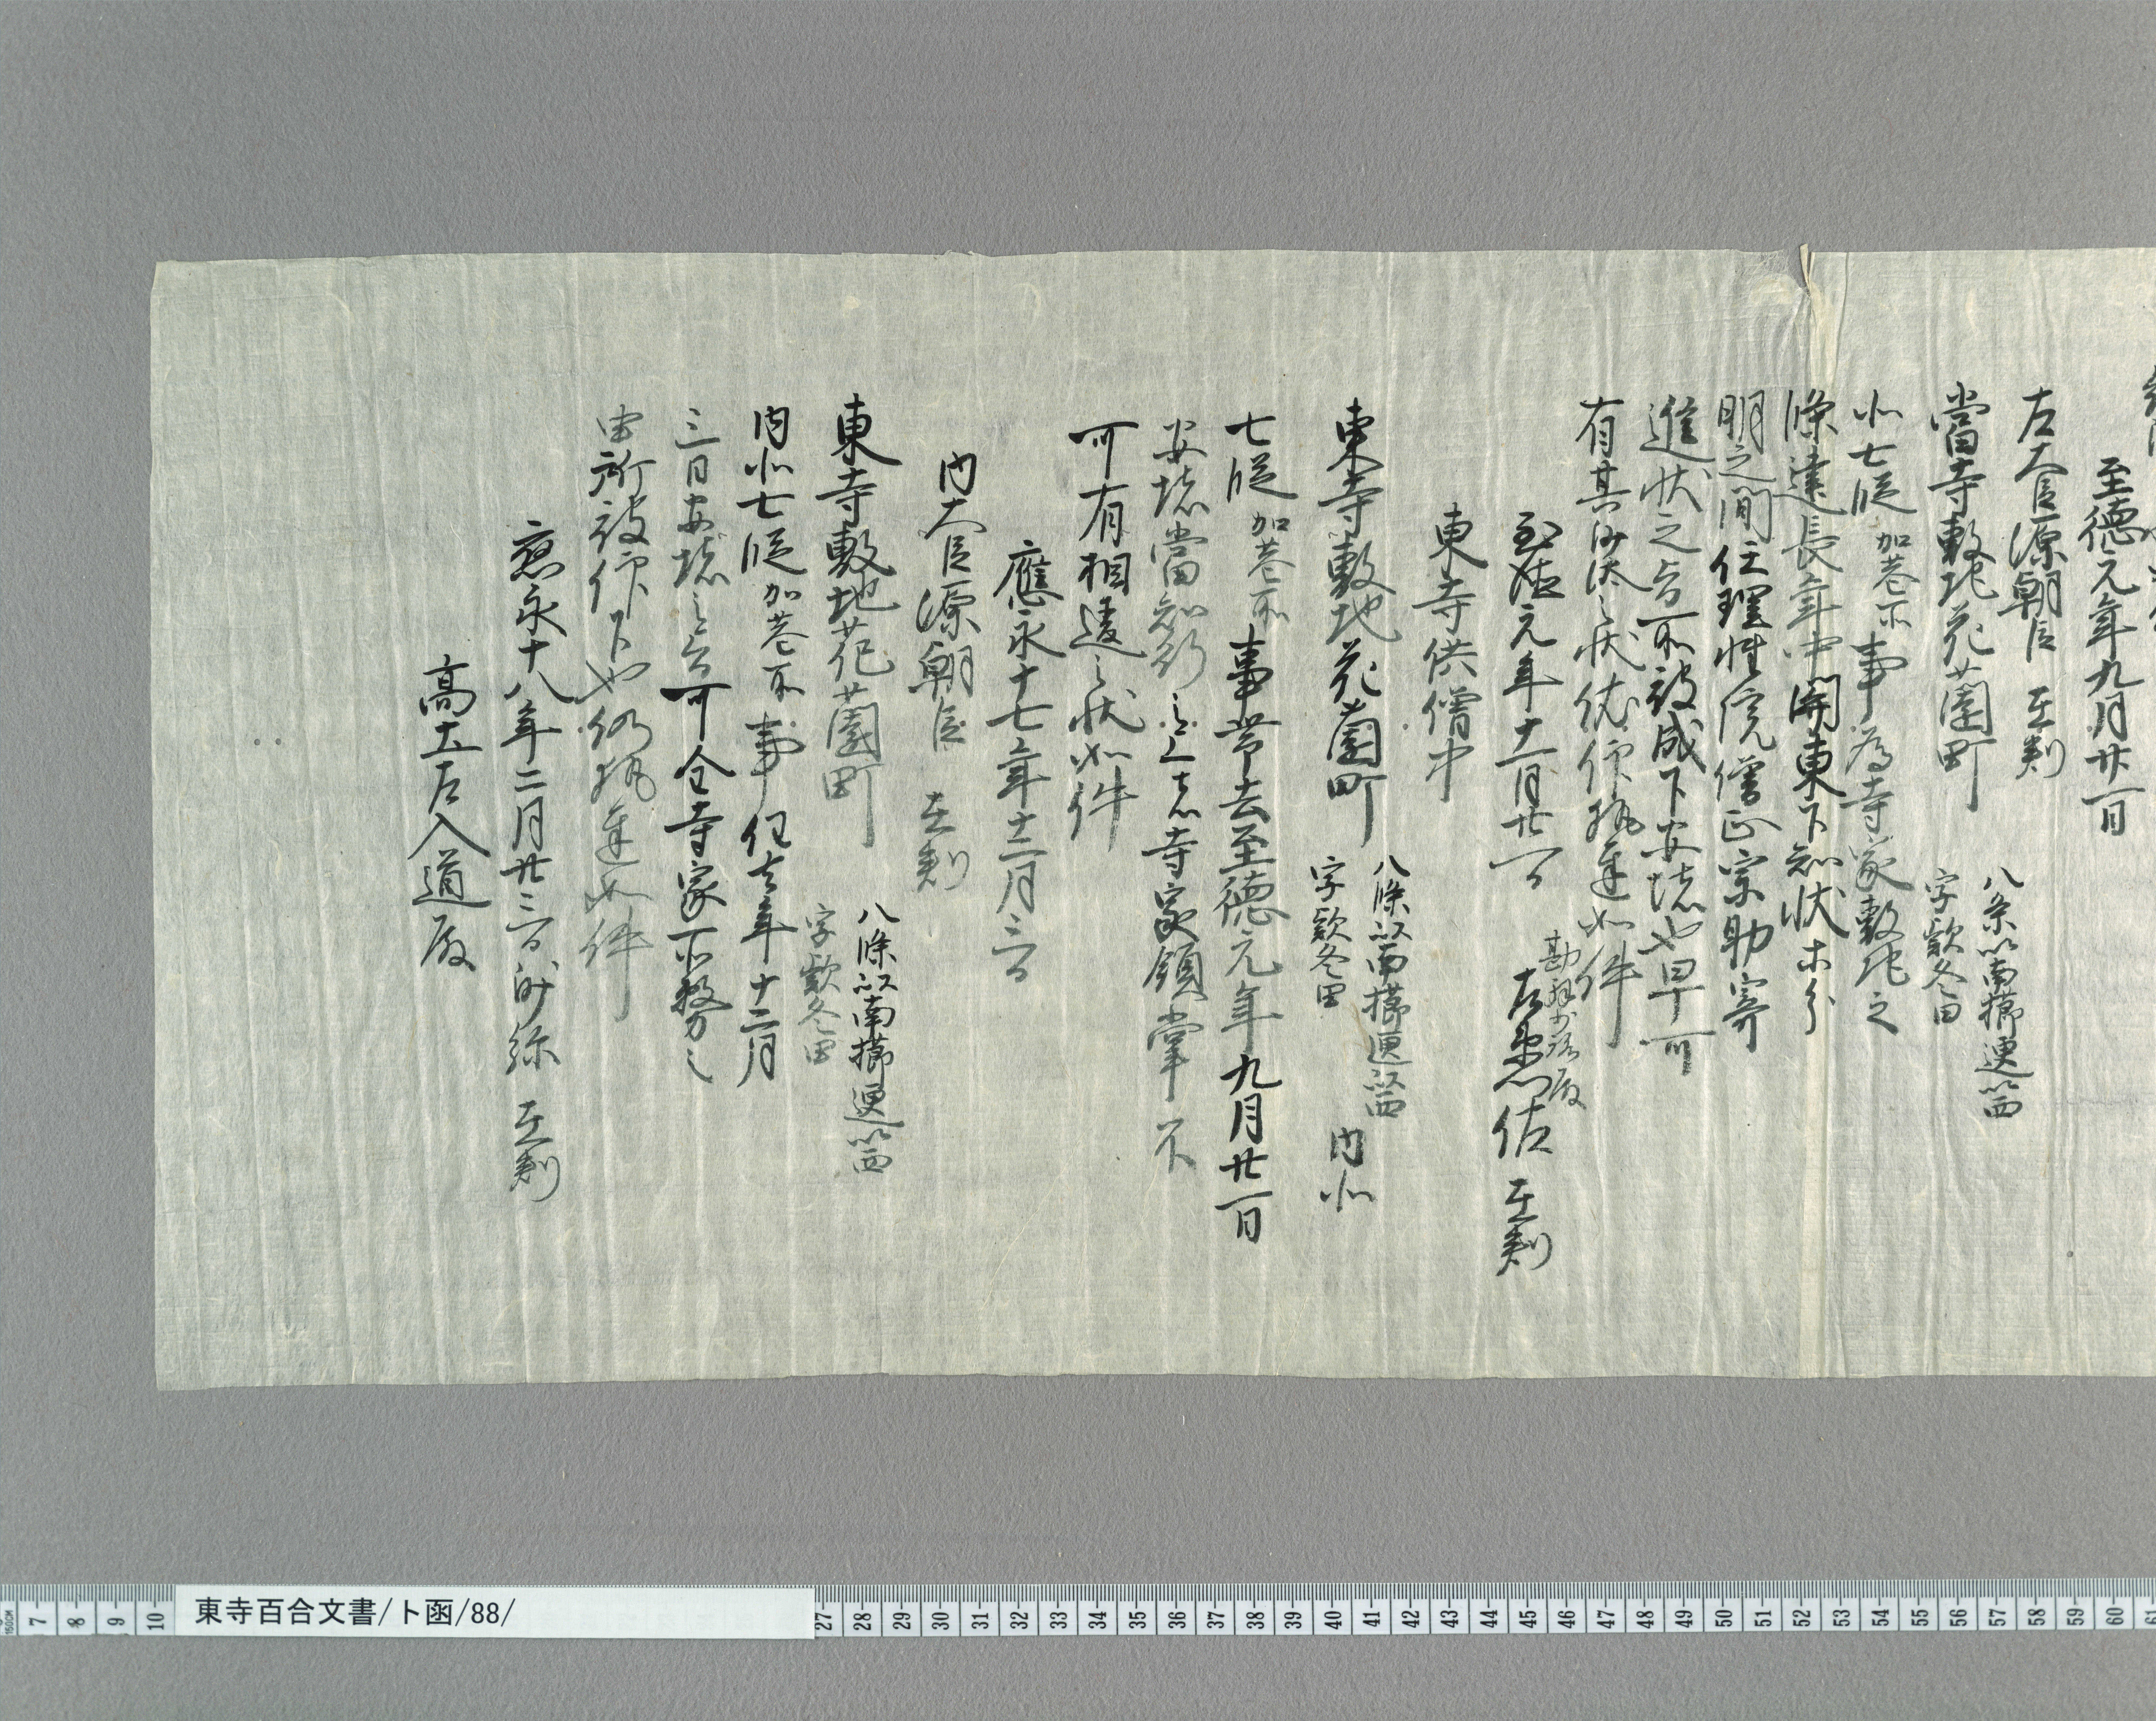 至徳元年九月廿一日
左大臣源朝臣 在判
當寺敷地花薗町 八条以南櫛笥以西 字款冬田
北七段 加巷所 事為寺家敷地之
條建長年中関東下知状等分
明之間任理性院僧正宗助寄
進状之旨所被成下安堵也早可
有其沙汰之状依仰執達如件
至徳元年十一月廿一日 左兵衛佐 在判
勘解由小路殿
東寺供僧中
東寺敷地花薗町 八條以南櫛笥以西 字款冬田 内北
七段 加巷所 事帯去至徳元年九月廿一日
安堵當知行之上者寺家領掌不
可有相違之状如件
應永十七年十二月三日
内大臣源朝臣 在判
東寺敷地花薗町 八條以南櫛笥以西 字款冬田
内北七段 加巷所 事任去年十二月
三日安堵之旨可全寺家所務之
由所被仰下也仍執達如件
應永十八年二月廿三日 沙弥 在判
高土左入道殿
東寺百合文書/ト函/88/